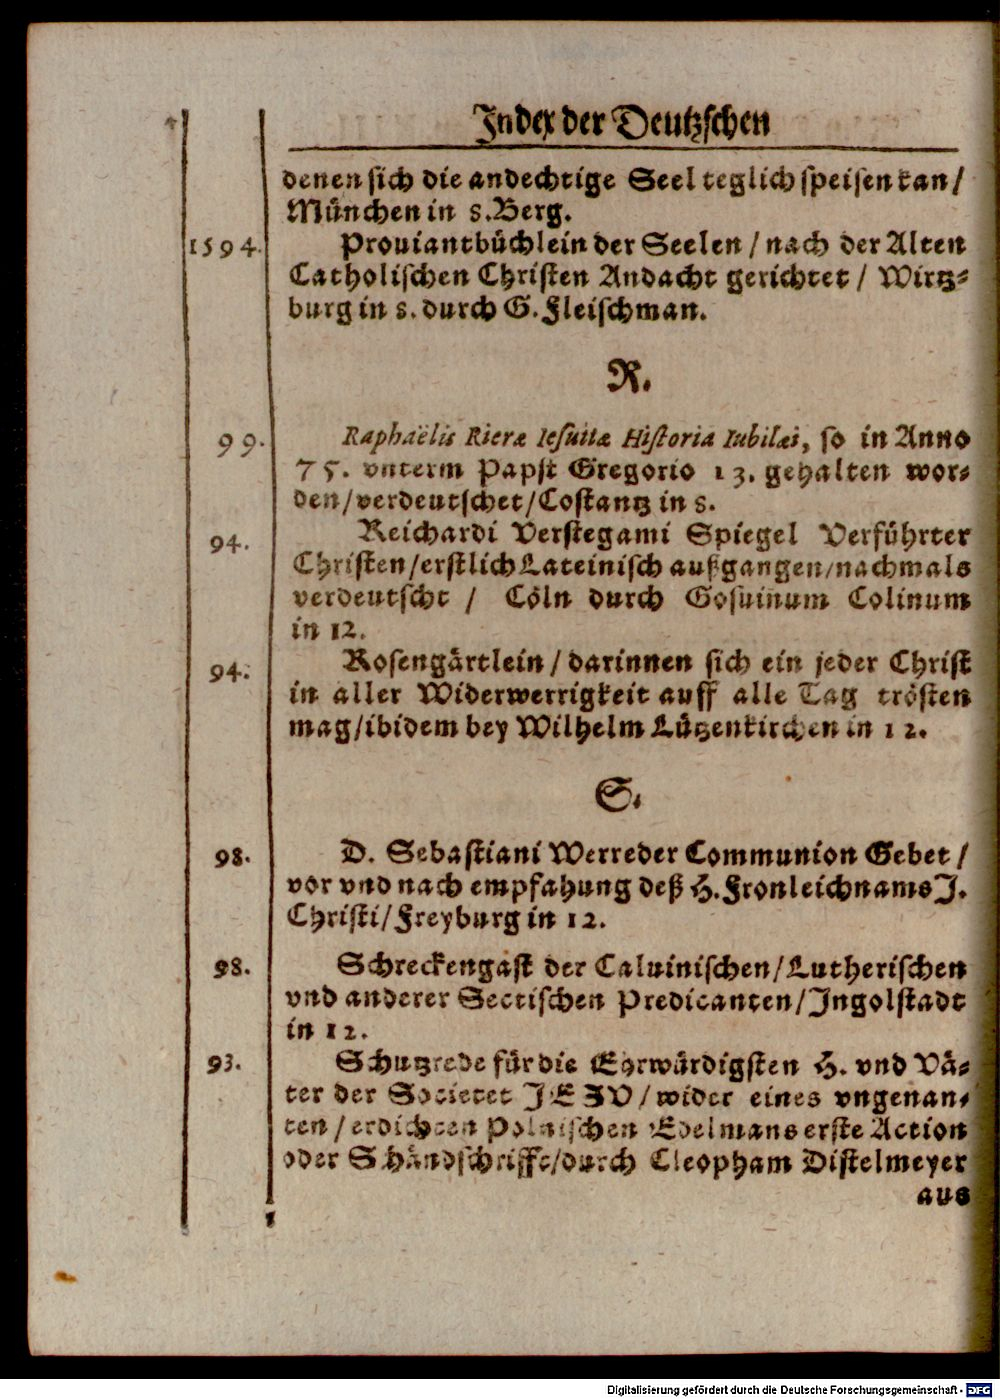 Index der Deutzschen
denen sich die andechtige Seel teglich speisen kan /
München in 8. Berg.
1594. Prouiantbüchlein der Seelen / nach der Alten
Catholischen Christen Andacht gerichtet / Wirtz-
burg in 8. durch G. Fleischman.
R.
99. Raphaëlis Rieræ Iesuitæ Historia Iubilæi, so in Anno
75. vnterm Papst Gregorio 13. gehalten wor-
den / verdeutschet / Costantz in 8.
94. Reichardi Verstegami Spiegel Verführter
Christen / erstlich Lateinisch außgangen / nachmals
verdeutscht / Cöln durch Gosuinum Colinum
in 12.
94. Rosengärtlein / darinnen sich ein jeder Christ
in aller Widerwerrigkeit auff alle Tag trösten
mag / ibidem bey Wilhelm Lützenkirchen in 12.
S.
98. D. Sebastiani Werreder Communion Gebet /
vor vnd nach empfahung deß H. Fronleichnams J.
Christi / Freyburg in 12.
98. Schreckengast der Caluinischen / Lutherischen
vnd anderer Sectischen Predicanten / Ingolstadt
in 12.
93. Schutzrede für die Ehrwürdigsten H. vnd Vä-
ter der Societet JESV / wider eines vngenan-
ten / erdichten Polnischen Edelmans erste Action
oder Schändschrifft / durch Cleopham Distelmeyer
aus
Digitalisierung gefördert durch die Deutsche Forschungsgemeinschaft - DFG